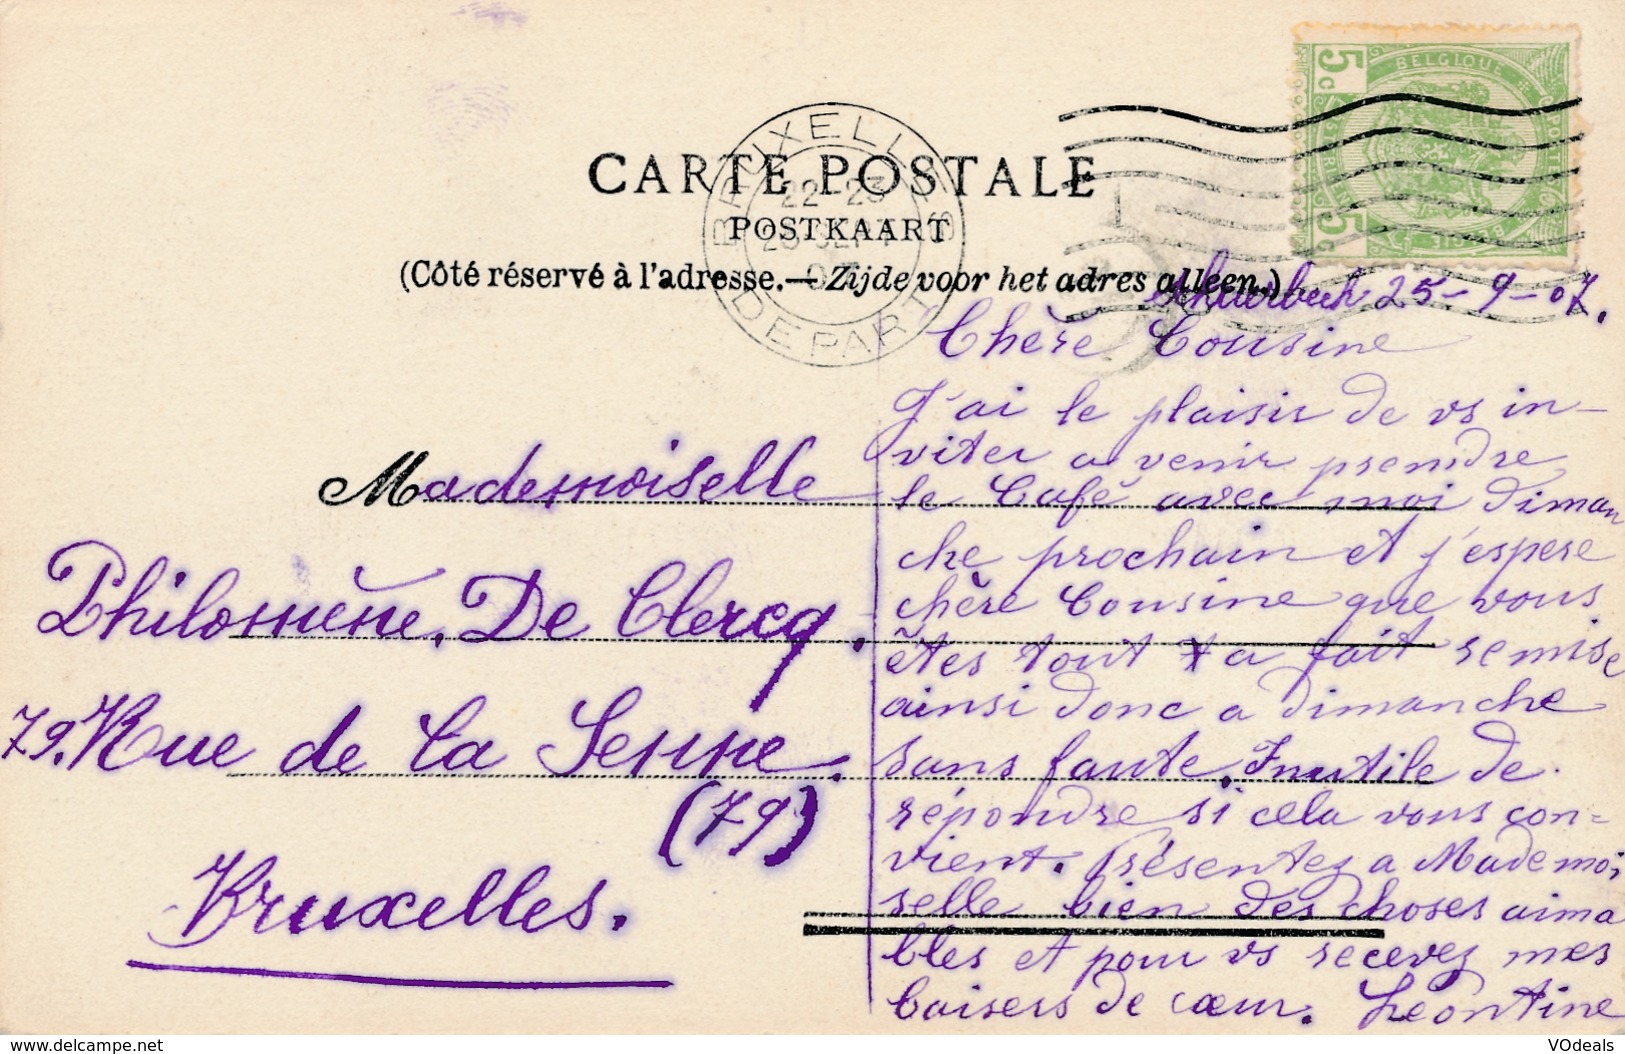 BELGIQUE
5 c
5 c
BELGIE
BRUXELLES
22-23
DEPART
CARTE POSTALE
POSTKAART
(Côté réservé à l'adresse.— Zijde voor het adres alleen.)
25-9-07.
Chère Cousine
J'ai le plaisir de vs in-
viter a venir prendre
le Café avec moi diman
che prochain et j'espere
chère Cousine que vous
êtes tout a fait remise
ainsi donc a dimanche
sans faute. Inutile de
répondre si cela vous con-
vient. Présentez a Mademoi
selle bien des choses aima
bles et pour vs recevez mes
baisers de cœur. Léontine
Mademoiselle
Philomène. De Clercq.
79. Rue de la Senne.
(79)
Bruxelles.
www.delcampe.net
VOdeals